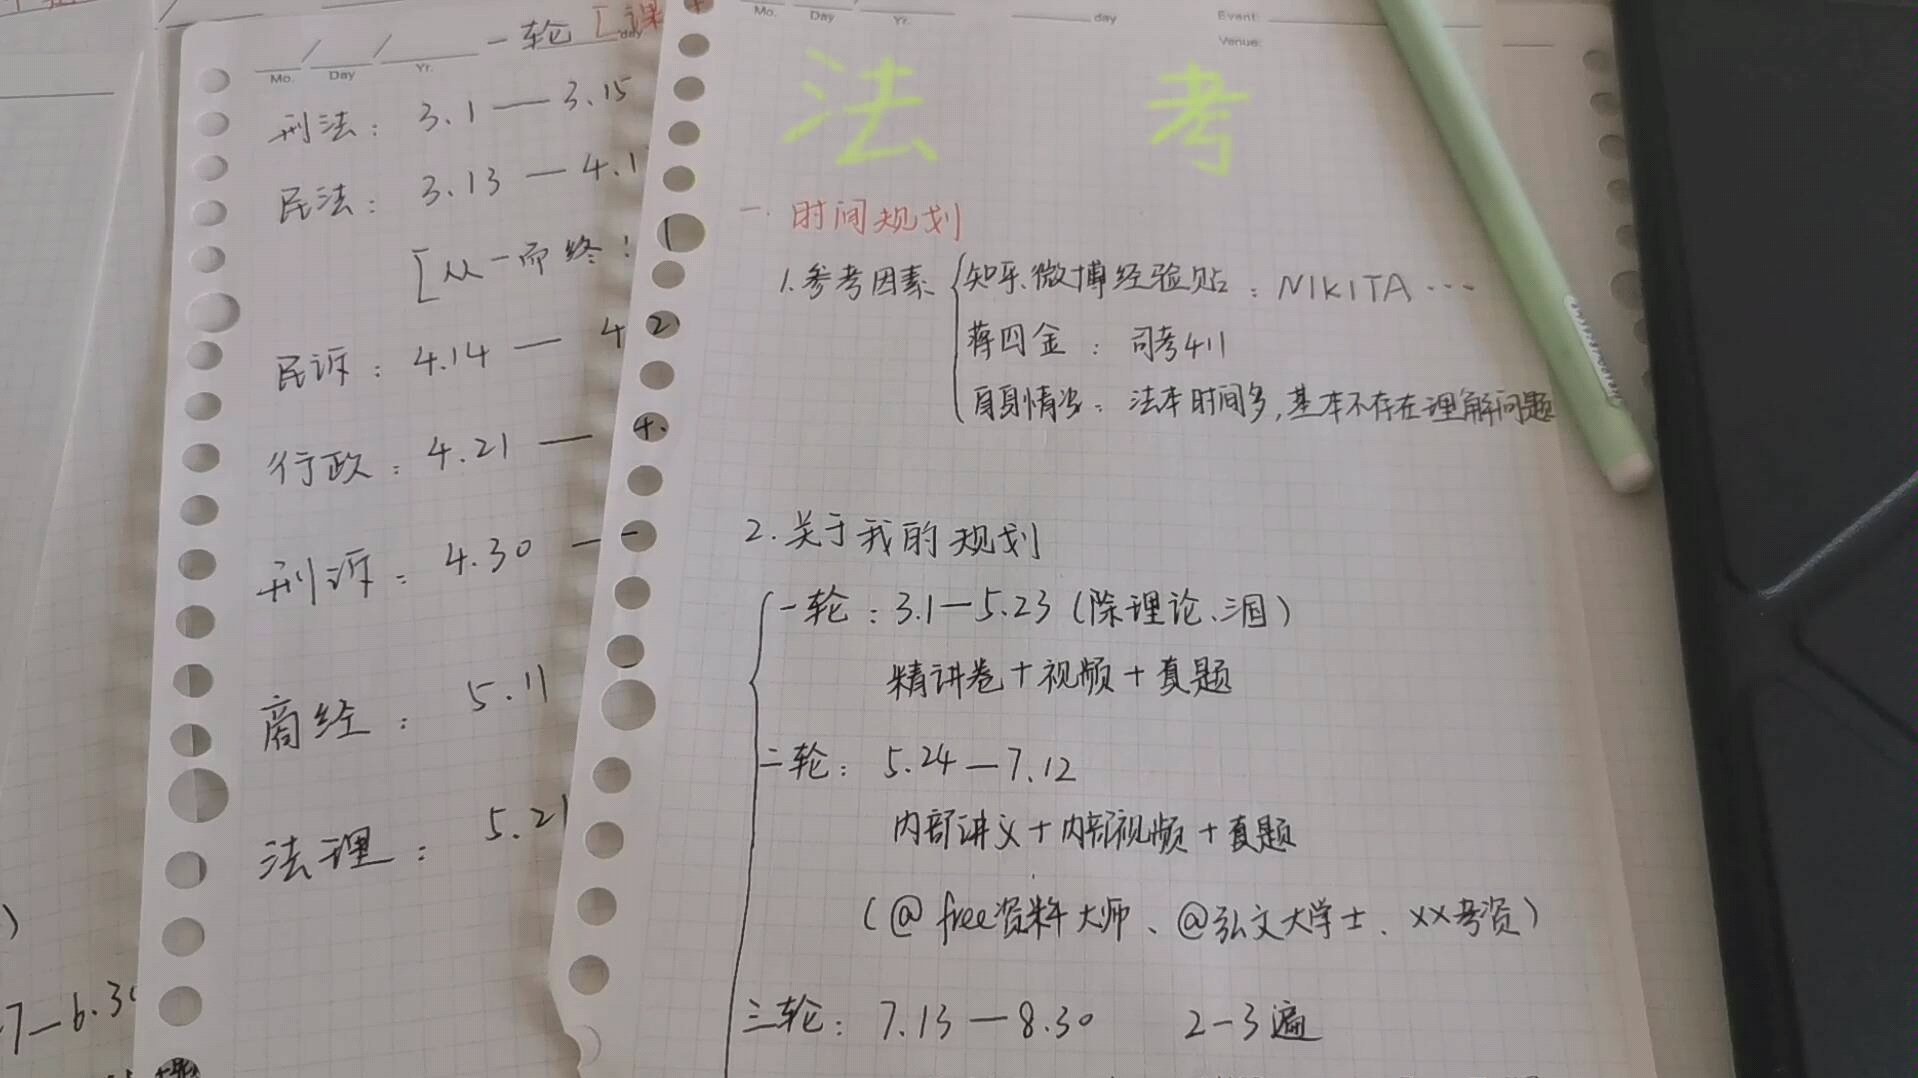 一轮 [课
Mo. Day Yr. day
刑法: 3.1 — 3.15
民法: 3.13 — 4.1
[从一而终!
民诉: 4.14 — 4
行政: 4.21 — 4.
刑诉: 4.30 —
商经: 5.11
法理: 5.21
7—6.3
Mo. Day Yr. day Event: Venue:
法 考
一. 时间规划
1.参考因素 {知乎、微博经验贴: NIKITA …
蒋四金: 司考411
自身情况: 法本时间多,基本不存在理解问题
2.关于我的规划
一轮: 3.1—5.23 (除理论、三国)
精讲卷+视频+真题
二轮: 5.24—7.12
内部讲义+内部视频+真题
(@free资料大师、@弘文大学士、××考资)
三轮: 7.13—8.30 2-3遍